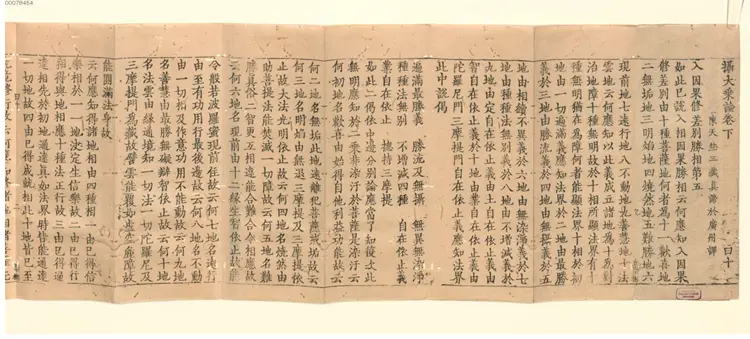 攝大乘論卷下
陳天竺三藏真諦於廣州譯
入因果修差別勝相第五
如此已說入因果勝相云何應知入因果
修差別由十種菩薩地何者為十一歡喜地
二無垢地三明焰地四燒然地五難勝地六
現前地七遠行地八不動地九善慧地十法
雲地云何應知以此義成立諸地為十為對
治地障十種無明故於十相所顯法界有十
種無明猶在為障何者能顯法界十相於初
地由一切遍滿義應知法界於二地由最勝
義於三地由勝流義於四地由無攝義於五
地由相續不異義於六地由無染淨義於七
地由種種法無別義於八地由不增減義於
九地由定自在依止義由土自在依止義由
智自在依止義於十地由業自在依止義由
陀羅尼門三摩提門自在依止義應知法界
此中說偈
遍滿最勝義 勝流及無攝 無異無染淨
種種法無別 不增減四種 自在依止義
業自在依止 總持三摩提
如此二偈依中邊分別論應當了知復次此
無明應知於二乘非染汙於菩薩是染汙云
何初地名歡喜由始得自他利益功能故云
何二地名無垢此地遠離犯菩薩戒垢故云
何三地名明焰由無退三摩提及三摩提依
止故大法光明依止故云何四地名燒然由
助菩提法能焚滅一切障故云何五地名難
勝真俗二智更互相違能合難合令相應故
云何六地名現前由十二緣生智依止故能
令般若波羅蜜現前住故云何七地名遠行
由至有功用行最後邊故云何八地名不動
由一切相及作意功用不能動故云何九地
名善慧由最勝無礙辯智依止故云何十地
名法雲由緣通境知一切法一切陀羅尼及
三摩提門為藏故譬雲能覆如虛空麁障故
能圓滿法身故
云何應知得諸地相由四種相一由已得信
樂相於一一地決定生信樂故二由已得行
相得與地相應十種法正行故三由已得通
達相先於初地通達真如法界時皆能通達
一切地故四由已得成就相此十地皆已至